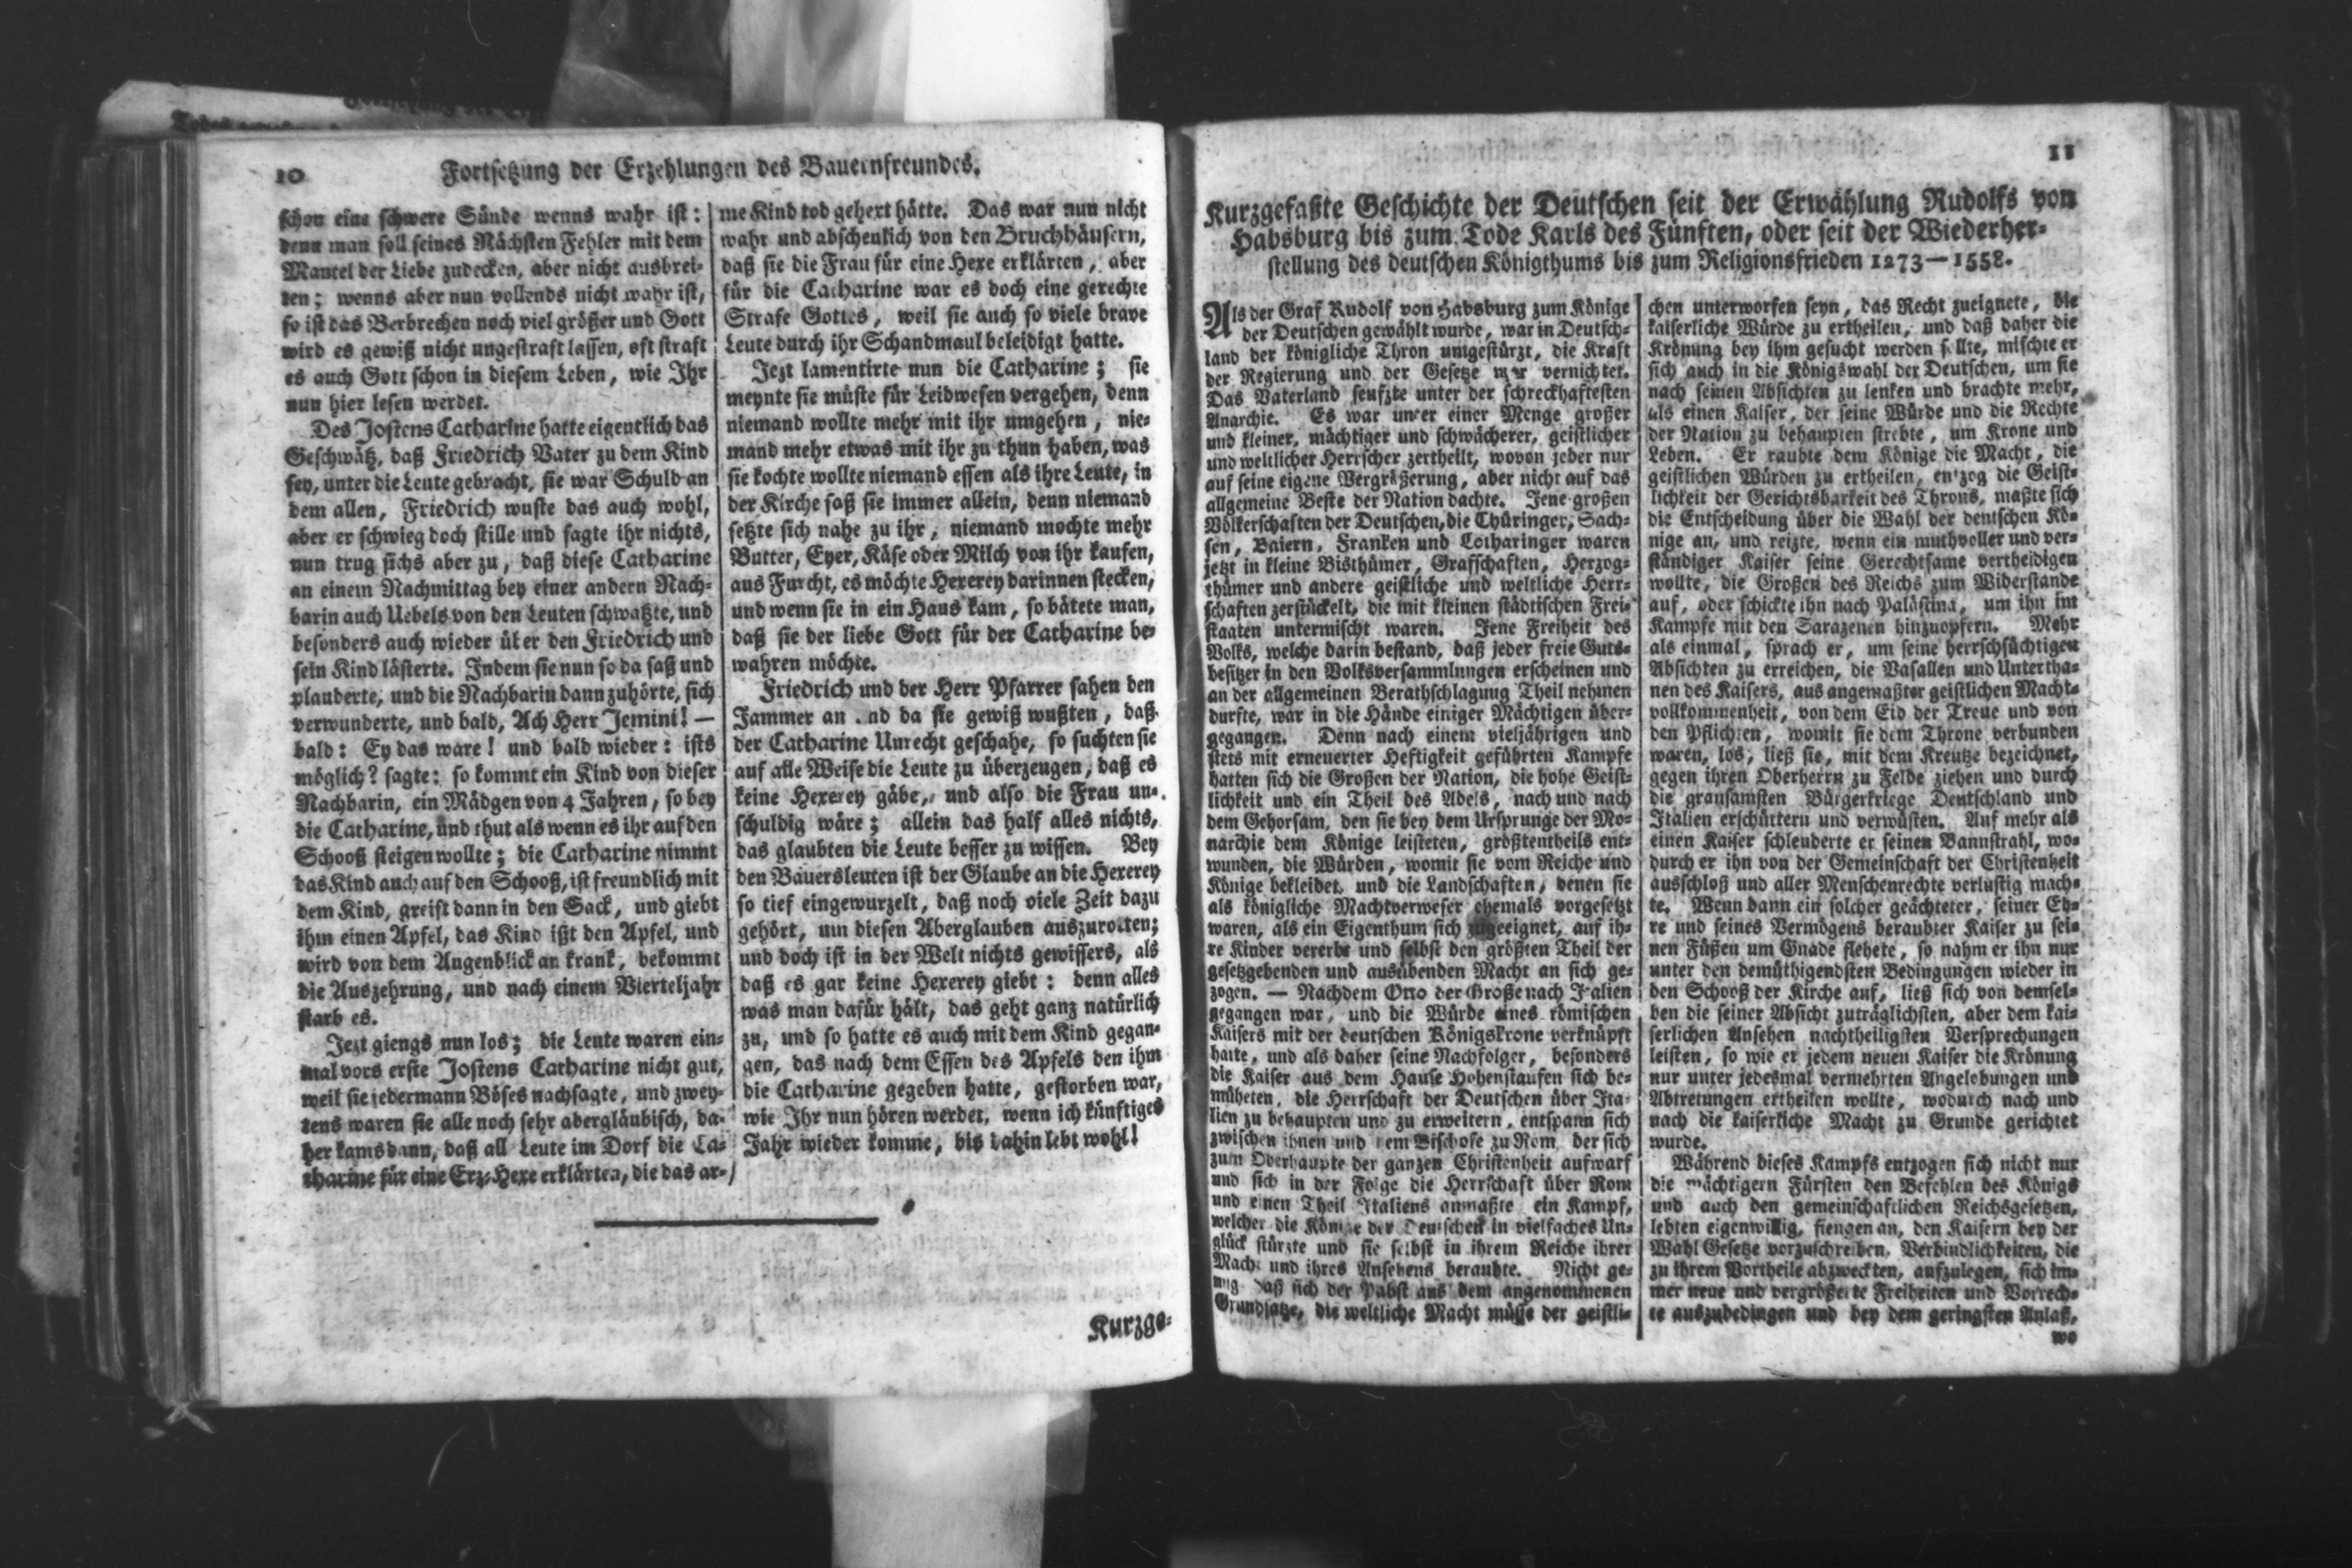 10 Fortsetzung der Erzehlungen des Bauernfreundes.
schon eine schwere Sünde wenns wahr ist:
denn man soll seines Nächsten Fehler mit dem
Mantel der Liebe zudecken, aber nicht ausbrei-
ten; wenns aber nun vollends nicht wahr ist,
so ist das Verbrechen noch viel größer und Gott
wird es gewiß nicht ungestraft lassen, oft straft
es auch Gott schon in diesem Leben, wie Ihr
nun hier lesen werdet.
Des Jostens Catharine hatte eigentlich das
Geschwätz, daß Friedrich Vater zu dem Kind
sey, unter die Leute gebracht, sie war Schuld an
dem allen, Friedrich wuste das auch wohl,
aber er schwieg doch stille und sagte ihr nichts,
nun trug sichs aber zu, daß diese Catharine
an einem Nachmittag bey einer andern Nach-
barin auch Uebels von den Leuten schwatzte, und
besonders auch wieder über den Friedrich und
sein Kind lästerte. Indem sie nun so da saß und
plauderte, und die Nachbarin dann zuhörte, sich
verwunderte, und bald, Ach Herr Jemini! —
bald: Ey das wäre! und bald wieder: ists
möglich? sagte: so kommt ein Kind von dieser
Nachbarin, ein Mädgen von 4 Jahren, so bey
die Catharine, und thut als wenn es ihr auf den
Schooß steigen wollte; die Catharine nimmt
das Kind auch auf den Schooß, ist freundlich mit
dem Kind, greift dann in den Sack, und giebt
ihm einen Apfel, das Kind ißt den Apfel, und
wird von dem Augenblick an krank, bekommt
die Auszehrung, und nach einem Vierteljahr
starb es.
Jezt giengs nun los; die Leute waren ein-
mal vors erste Jostens Catharine nicht gut,
weil sie jedermann Böses nachsagte, und zwey-
tens waren sie alle noch sehr abergläubisch, da-
her kams dann, daß all Leute im Dorf die Ca-
tharine für eine Erz-Hexe erklärten, die das ar-
me Kind tod gehext hätte. Das war nun nicht
wahr und abscheulich von den Bruchhäusern,
daß sie die Frau für eine Hexe erklärten, aber
für die Catharine war es doch eine gerechte
Strafe Gottes, weil sie auch so viele brave
Leute durch ihr Schandmaul beleidigt hatte.
Jezt lamentirte nun die Catharine; sie
meynte sie müste für Leidwesen vergehen, denn
niemand wollte mehr mit ihr umgehen, nie-
mand mehr etwas mit ihr zu thun haben, was
sie kochte wollte niemand essen als ihre Leute, in
der Kirche saß sie immer allein, denn niemand
setzte sich nahe zu ihr, niemand mochte mehr
Butter, Eyer, Käse oder Milch von ihr kaufen,
aus Furcht, es möchte Hexerey darinnen stecken,
und wenn sie in ein Haus kam, so bätete man,
daß sie der liebe Gott für der Catharine be-
wahren möchte.
Friedrich und der Herr Pfarrer sahen den
Jammer an und da sie gewiß wußten, daß
der Catharine Unrecht geschahe, so suchten sie
auf alle Weise die Leute zu überzeugen, daß es
keine Hexerey gäbe, und also die Frau un-
schuldig wäre; allein das half alles nichts,
das glaubten die Leute besser zu wissen. Bey
den Bauersleuten ist der Glaube an die Hexerey
so tief eingewurzelt, daß noch viele Zeit dazu
gehört, um diesen Aberglauben auszurotten;
und doch ist in der Welt nichts gewissers, als
daß es gar keine Hexerey giebt: denn alles
was man dafür hält, das geht ganz natürlich
zu, und so hatte es auch mit dem Kind gegan-
gen, das nach dem Essen des Apfels den ihm
die Catharine gegeben hatte, gestorben war,
wie Ihr nun hören werdet, wenn ich künftiges
Jahr wieder komme, bis dahin lebt wohl!
Kurzge-
11
Kurzgefaßte Geschichte der Deutschen seit der Erwählung Rudolfs von
Habsburg bis zum Tode Karls des Fünften, oder seit der Wiederher-
stellung des deutschen Königthums bis zum Religionsfrieden 1273—1558.
Als der Graf Rudolf von Habsburg zum Könige
der Deutschen gewählt wurde, war in Deutsch-
land der königliche Thron umgestürzt, die Kraft
der Regierung und der Gesetze war vernichtet.
Das Vaterland seufzte unter der schreckhaftesten
Anarchie. Es war unter einer Menge großer
und kleiner, mächtiger und schwächerer, geistlicher
und weltlicher Herrscher zertheilt, wovon jeder nur
auf seine eigene Vergrößerung, aber nicht auf das
allgemeine Beste der Nation dachte. Jene großen
Völkerschaften der Deutschen, die Thüringer, Sach-
sen, Baiern, Franken und Lotharinger waren
jetzt in kleine Bisthümer, Grafschaften, Herzog-
thümer und andere geistliche und weltliche Herr-
schaften zerstückelt, die mit kleinen städtischen Frei-
staaten untermischt waren. Jene Freiheit des
Volks, welche darin bestand, daß jeder freie Guts-
besitzer in den Volksversammlungen erscheinen und
an der allgemeinen Berathschlagung Theil nehmen
durfte, war in die Hände einiger Mächtigen über-
gegangen. Denn nach einem vieljährigen und
stets mit erneuerter Heftigkeit geführten Kampfe
hatten sich die Großen der Nation, die hohe Geist-
lichkeit und ein Theil des Adels, nach und nach
dem Gehorsam, den sie bey dem Ursprunge der Mo-
narchie dem Könige leisteten, größtentheils ent-
wunden, die Würden, womit sie vom Reiche und
Könige bekleidet, und die Landschaften, denen sie
als königliche Machtverweser ehemals vorgesetzt
waren, als ein Eigenthum sich zugeeignet, auf ih-
re Kinder vererbt und selbst den größten Theil der
gesetzgebenden und ausübenden Macht an sich ge-
zogen. — Nachdem Otto der Große nach Italien
gegangen war, und die Würde eines römischen
Kaisers mit der deutschen Königskrone verknüpft
hatte, und als daher seine Nachfolger, besonders
die Kaiser aus dem Hause Hohenstaufen sich be-
müheten, die Herrschaft der Deutschen über Ita-
lien zu behaupten und zu erweitern, entspann sich
zwischen ihnen und dem Bischofe zu Rom, der sich
zum Oberhaupte der ganzen Christenheit aufwarf
und sich in der Folge die Herrschaft über Rom
und einen Theil Italiens anmaßte ein Kampf,
welcher die Könige der Deutschen in vielfaches Un-
glück stürzte und sie selbst in ihrem Reiche ihrer
Macht und ihres Ansehens beraubte. Nicht ge-
nug, daß sich der Pabst aus dem angenommenen
Grundsatze, die weltliche Macht müsse der geistli-
chen unterworfen seyn, das Recht zueignete, die
kaiserliche Würde zu ertheilen, und daß daher die
Krönung bey ihm gesucht werden sollte, mischte er
sich auch in die Königswahl der Deutschen, um sie
nach seinen Absichten zu lenken und brachte mehr,
als einen Kaiser, der seine Würde und die Rechte
der Nation zu behaupten strebte, um Krone und
Leben. Er raubte dem Könige die Macht, die
geistlichen Würden zu ertheilen, entzog die Geist-
lichkeit der Gerichtsbarkeit des Throns, maßte sich
die Entscheidung über die Wahl der deutschen Kö-
nige an, und reizte, wenn ein muthvoller und ver-
ständiger Kaiser seine Gerechtsame vertheidigen
wollte, die Großen des Reichs zum Widerstande
auf, oder schickte ihn nach Palästina, um ihn im
Kampfe mit den Sarazenen hinzuopfern. Mehr
als einmal, sprach er, um seine herrschsüchtigen
Absichten zu erreichen, die Vasallen und Untertha-
nen des Kaisers, aus angemaßter geistlichen Macht-
vollkommenheit, von dem Eid der Treue und von
den Pflichten, womit sie dem Throne verbunden
waren, los; ließ sie, mit dem Kreutze bezeichnet,
gegen ihren Oberherrn zu Felde ziehen und durch
die grausamsten Bürgerkriege Deutschland und
Italien erschüttern und verwüsten. Auf mehr als
einen Kaiser schleuderte er seinen Bannstrahl, wo-
durch er ihn von der Gemeinschaft der Christenheit
ausschloß und aller Menschenrechte verlustig mach-
te. Wenn dann ein solcher geächteter, seiner Eh-
re und seines Vermögens beraubter Kaiser zu sei-
nen Füßen um Gnade flehete, so nahm er ihn nur
unter den demüthigendsten Bedingungen wieder in
den Schooß der Kirche auf, ließ sich von demsel-
ben die seiner Absicht zuträglichsten, aber dem kai-
serlichen Ansehen nachtheiligsten Versprechungen
leisten, so wie er jedem neuen Kaiser die Krönung
nur unter jedesmal vermehrten Angelobungen und
Abtretungen ertheilen wollte, wodurch nach und
nach die kaiserliche Macht zu Grunde gerichtet
wurde.
Während dieses Kampfs entzogen sich nicht nur
die mächtigern Fürsten den Befehlen des Königs
und auch den gemeinschaftlichen Reichsgesetzen,
lebten eigenwillig, fiengen an, den Kaisern bey der
Wahl Gesetze vorzuschreiben, Verbindlichkeiten, die
zu ihrem Vortheile abzweckten, aufzulegen, sich im-
mer neue und vergrößerte Freiheiten und Vorrech-
te auszubedingen und bey dem geringsten Anlaß,
wo